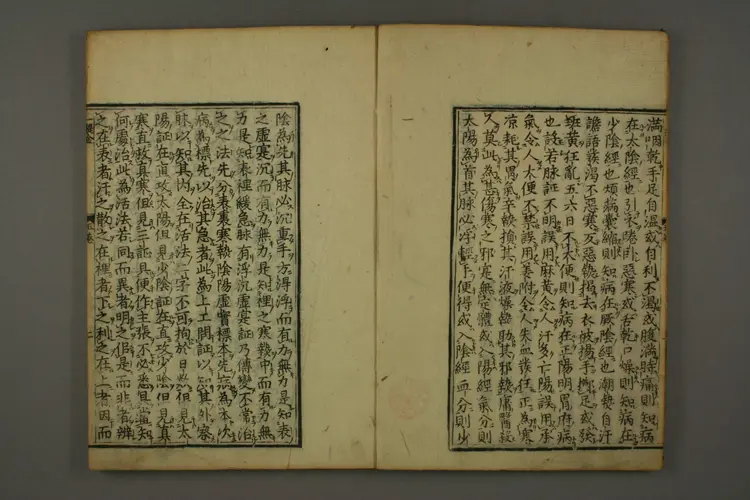 滿咽乾手足自溫或自利不渴或腹滿時痛則知病
在太陰經也引衣踡卧惡寒或舌乾口燥則知病在
少陰經也煩滿囊縮則知病在厥陰經也潮熱自汗
譫語發渴不惡寒反惡熱揭去衣被揚手擲足或發
斑黃狂亂五六日不大便則知病在正陽明胃府病
也設若脉証不明誤用麻黃令人汗多亡陽誤用承
氣令人大便不禁誤用姜附令人失血發狂正為寒
凉耗其胃氣辛熱損其汗液燥熱助其邪熱庸醫殺
人莫此為甚傷寒之邪寔無定體或入陽經氣分則
太陽為首其脉必浮輕手便得或入陰經血分則少
陰為先其脉必沉重手方得浮而有力無力是知表
之虛寔沉而有力無力是知裡之寒熱中而有力無
力是知表裡緩急脉有浮沉虛寔証乃傳變不常治
之之法先分表裏寒熱陰陽虛實標本先病為本次
病為標先以治其急者此為上工問証以知其外察
脉以知其內全在活法二字不可拘於日數但見太
陽証在直攻太陽但見少陰証在直攻少陰但見真
寒直救真寒但見三証具便作主張不必悉具當知
何處治此為活法若同而異者明之似是而非者辨
之在表者汗之散之在裡者下之利之在上者因而